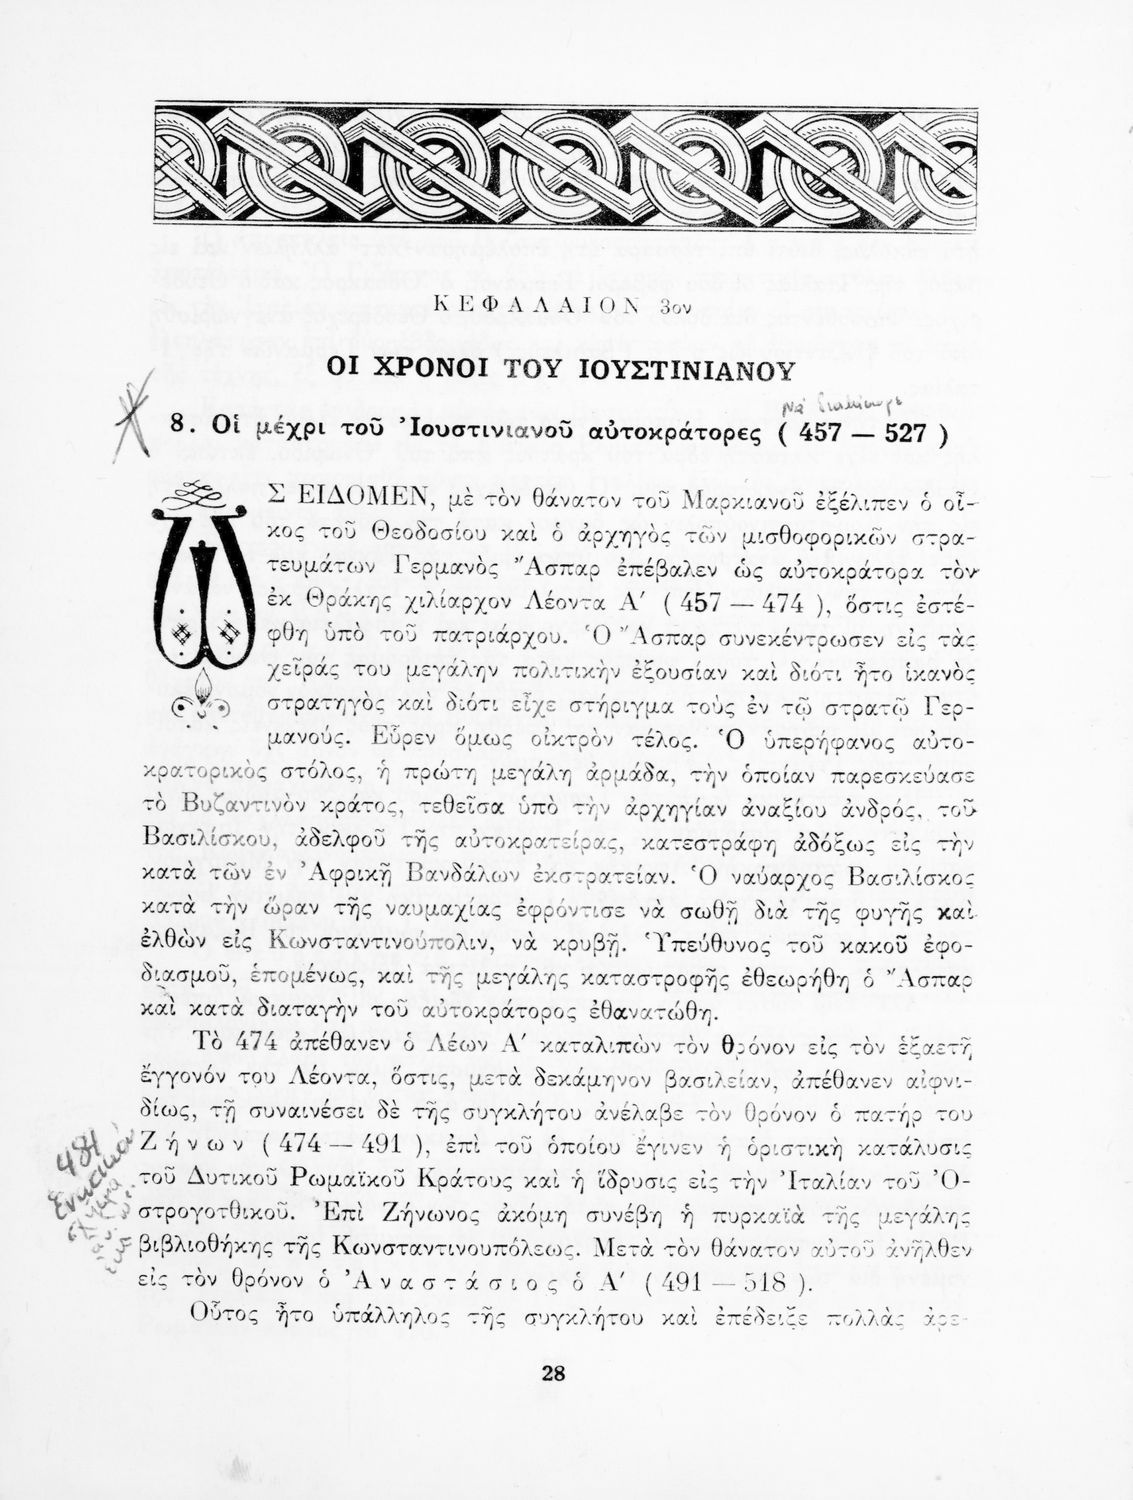 ΚΕΦΑΛΑΙΟΝ 3ον
ΟΙ ΧΡΟΝΟΙ ΤΟΥ ΙΟΥΣΤΙΝΙΑΝΟΥ
8. Οἱ μέχρι τοῦ Ἰουστινιανοῦ αὐτοκράτορες ( 457 — 527 )
ΩΣ ΕΙΔΟΜΕΝ, μὲ τὸν θάνατον τοῦ Μαρκιανοῦ ἐξέλιπεν ὁ οἶ-
κος τοῦ Θεοδοσίου καὶ ὁ ἀρχηγὸς τῶν μισθοφορικῶν στρα-
τευμάτων Γερμανὸς Ἄσπαρ ἐπέβαλεν ὡς αὐτοκράτορα τὸν
ἐκ Θράκης χιλίαρχον Λέοντα Α′ ( 457 — 474 ), ὅστις ἐστέ-
φθη ὑπὸ τοῦ πατριάρχου. Ὁ Ἄσπαρ συνεκέντρωσεν εἰς τὰς
χεῖράς του μεγάλην πολιτικὴν ἐξουσίαν καὶ διότι ἦτο ἱκανὸς
στρατηγὸς καὶ διότι εἶχε στήριγμα τοὺς ἐν τῷ στρατῷ Γερ-
μανούς. Εὗρεν ὅμως οἰκτρὸν τέλος. Ὁ ὑπερήφανος αὐτο-
κρατορικὸς στόλος, ἡ πρώτη μεγάλη ἁρμάδα, τὴν ὁποίαν παρεσκεύασε
τὸ Βυζαντινὸν κράτος, τεθεῖσα ὑπὸ τὴν ἀρχηγίαν ἀναξίου ἀνδρός, τοῦ
Βασιλίσκου, ἀδελφοῦ τῆς αὐτοκρατείρας, κατεστράφη ἀδόξως εἰς τὴν
κατὰ τῶν ἐν Ἀφρικῇ Βανδάλων ἐκστρατείαν. Ὁ ναύαρχος Βασιλίσκος
κατὰ τὴν ὥραν τῆς ναυμαχίας ἐφρόντισε νὰ σωθῇ διὰ τῆς φυγῆς καὶ
ἐλθὼν εἰς Κωνσταντινούπολιν, νὰ κρυβῇ. Ὑπεύθυνος τοῦ κακοῦ ἐφο-
διασμοῦ, ἑπομένως, καὶ τῆς μεγάλης καταστροφῆς ἐθεωρήθη ὁ Ἄσπαρ
καὶ κατὰ διαταγὴν τοῦ αὐτοκράτορος ἐθανατώθη.
Τὸ 474 ἀπέθανεν ὁ Λέων Α′ καταλιπὼν τὸν θρόνον εἰς τὸν ἑξαετῆ
ἔγγονόν του Λέοντα, ὅστις, μετὰ δεκάμηνον βασιλείαν, ἀπέθανεν αἰφνι-
δίως, τῇ συναινέσει δὲ τῆς συγκλήτου ἀνέλαβε τὸν θρόνον ὁ πατήρ του
Ζήνων ( 474 — 491 ), ἐπὶ τοῦ ὁποίου ἔγινεν ἡ ὁριστικὴ κατάλυσις
τοῦ Δυτικοῦ Ρωμαϊκοῦ Κράτους καὶ ἡ ἵδρυσις εἰς τὴν Ἰταλίαν τοῦ Ὀ-
στρογοτθικοῦ. Ἐπὶ Ζήνωνος ἀκόμη συνέβη ἡ πυρκαϊὰ τῆς μεγάλης
βιβλιοθήκης τῆς Κωνσταντινουπόλεως. Μετὰ τὸν θάνατον αὐτοῦ ἀνῆλθεν
εἰς τὸν θρόνον ὁ Ἀναστάσιος ὁ Α′ ( 491 — 518 ).
Οὗτος ἦτο ὑπάλληλος τῆς συγκλήτου καὶ ἐπέδειξε πολλὰς ἀρε-
484
28